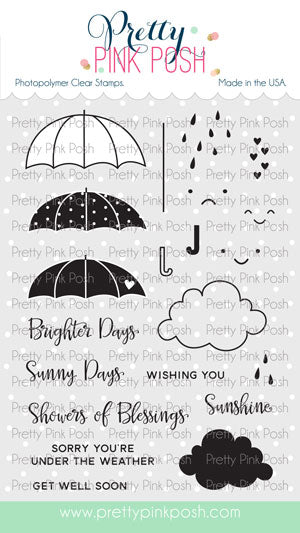 Pretty
PINK POSH
Photopolymer Clear Stamps.
Made in the USA.
Brighter Days
Sunny Days
WISHING YOU
Showers of Blessings
Sunshine
SORRY YOU'RE
UNDER THE WEATHER
GET WELL SOON
Pretty Pink Posh
www.prettypinkposh.com